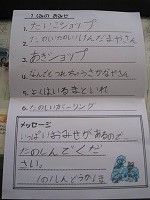 1くみの おみせ
1. たいこショップ
2. たのしいたのしいけんだまやさん
3. あきショップ
4. なんでもつれちゃうさかなやさん
5. よくはいるまといれ
6. たのしいボーリング
メッセージ
いっぱいおみせがあるので、
たのしんでくだ
さい。